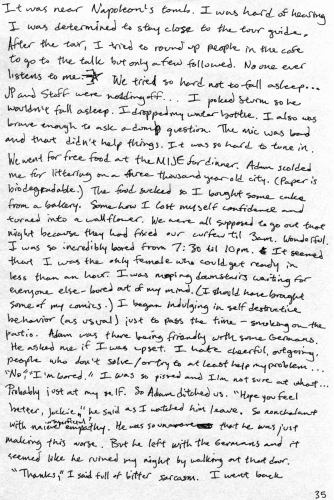 It was near Napoleon's tomb. I was hard of hearing
I was determined to stay close to the tour guide.
After the tour, I tried to round up people in the cafe
to go to the talk but only a few followed. No one ever
listens to me. We tried so hard not to fall asleep...
JP and Staff were nodding off... I poked Sturm so he
wouldn't fall asleep. I dropped my water bottle. I also was
brave enough to ask a dumb question. The mic was bad
and that didn't help things. It was so hard to tune in.
We went for free food at the MIJE for dinner. Adam scolded
me for littering on a three thousand year old city. (Paper is
biodegradable.) The food sucked so I bought some cake
from a bakery. Somehow I lost myself confidence and
turned into a wallflower. We were all supposed to go out that
night because they had fixed our curfew til 3am. Wonderful.
I was so incredibly bored from 7:30 til 10pm. It seemed
that I was the only female who could get ready in
less than an hour. I was moping downstairs waiting for
everyone else - bored out of my mind. (I should have brought
some of my comics.) I began indulging in self destructive
behavior (as usual) just to pass the time - smoking on the
patio. Adam was there being friendly with some Germans.
He asked me if I was upset. I hate cheerful, outgoing
people who don't solve / or try to at least help my problem...
"No," "I'm bored." I was so pissed and I'm not sure at what...
Probably just at my self. So Adam ditched us. "Hope you feel
better, Jackie," he said as I watched him leave. So nonchalant
with empathy. He was so that he was just
making this worse. But he left with the Germans and it
seemed like he ruined my night by walking out that door.
"Thanks," I said full of bitter sarcasm. I went back
35